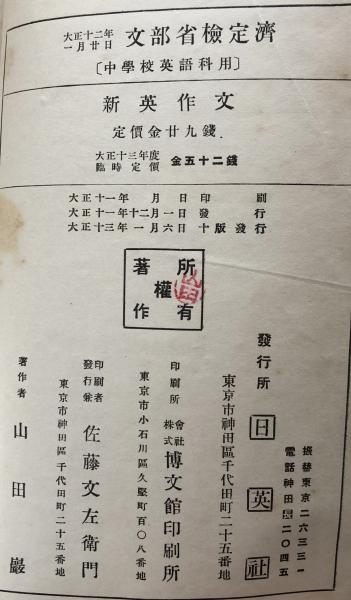 大正十二年一月廿日 文部省檢定濟
〔中學校英語科用〕
新英作文
定價金廿九錢.
大正十三年度臨時定價 金五十二錢
大正十一年 月 日印 刷
大正十一年十二月一日發 行
大正十三年一月六日十版發行
著作權所有
發行所 日英社
東京市神田區千代田町二十五番地
振替東京二六三三一
電話神田 二〇四五
印刷所 株式會社 博文館印刷所
東京市小石川區久堅町百〇八番地
發行兼印刷者 佐藤文左衛門
東京市神田區千代田町二十五番地
著作者 山田巖